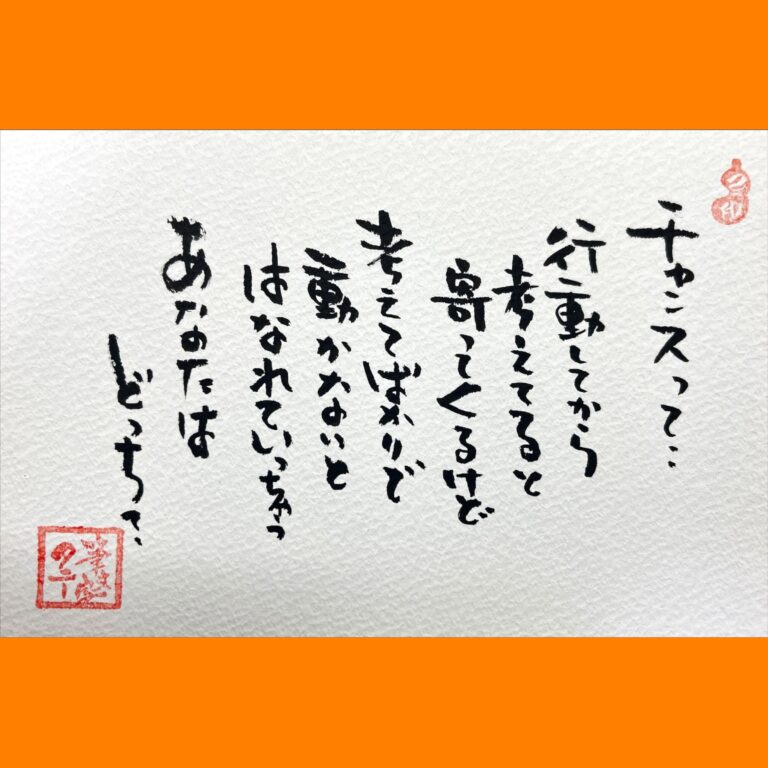 チャンスって‥
行動してから
考えてると
寄ってくるけど
考えてばかりで
動かないと
はなれていっちゃう
あなたは
どっち？